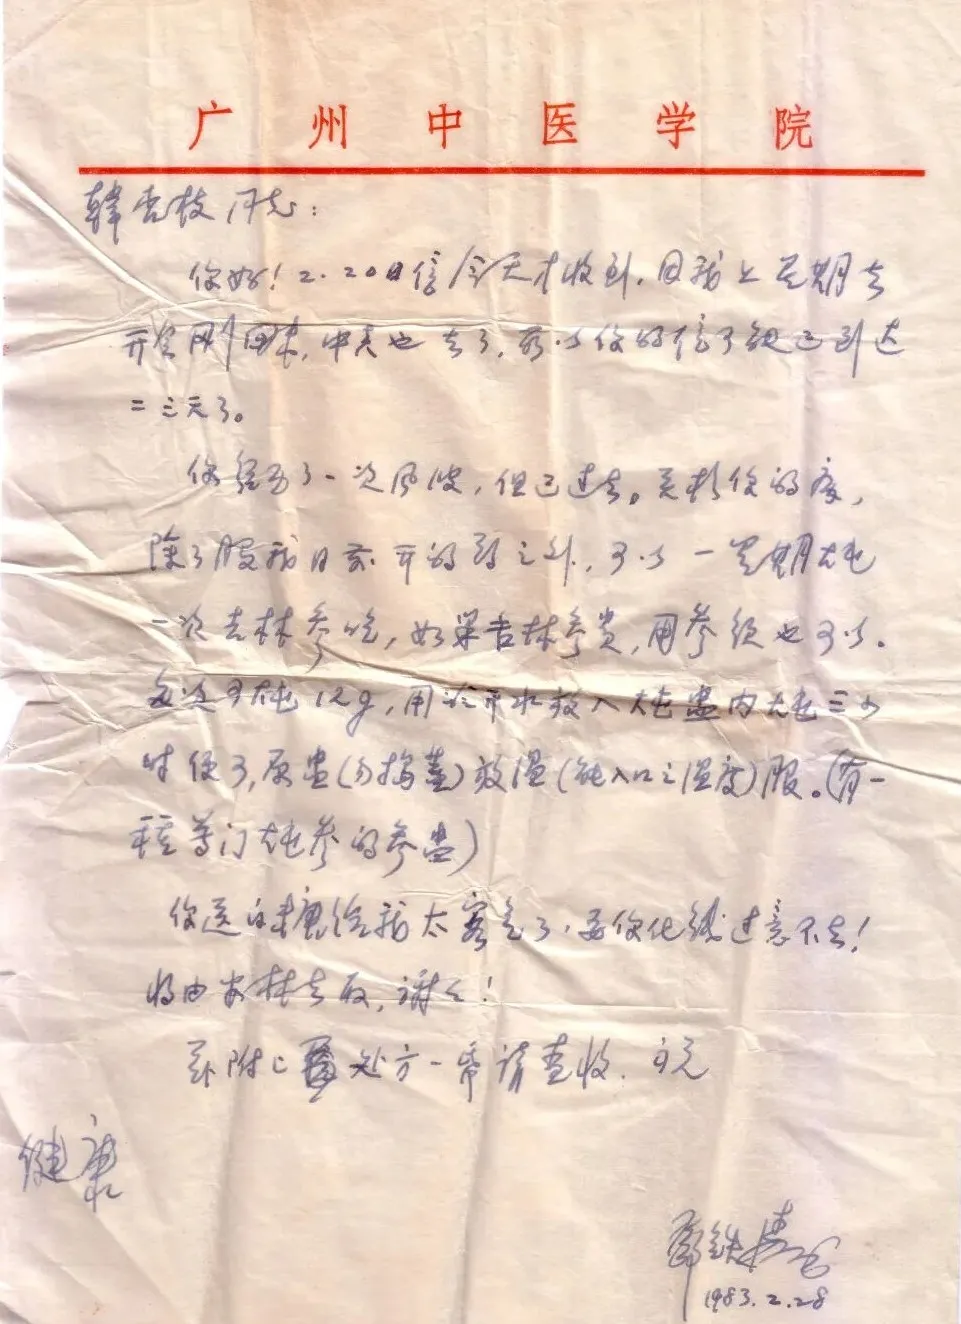 广州中医学院
韩杏枝同志：
你好！2.20日信今天才收到，因我上星期去
开会刚回来，中夫也去了，所以你的信可能已到达
二三天了。
你经历了一次风波，但已过去。关于你的病，
除了服我日前开的药之外，可以一星期炖
一次吉林参吃，如果吉林参贵，用参须也可以。
每次可炖12g，用冷开水放入炖盅内炖三小
时便可，原盅(勿揭盖)放温(能入口之温度)服。(有一
种专门炖参的参盅)
你送的糖给我太客气了，要你化钱过意不去！
将由 林去取，谢谢！
附上 处方一帋请查收。
健康
邓铁涛
1983.2.28